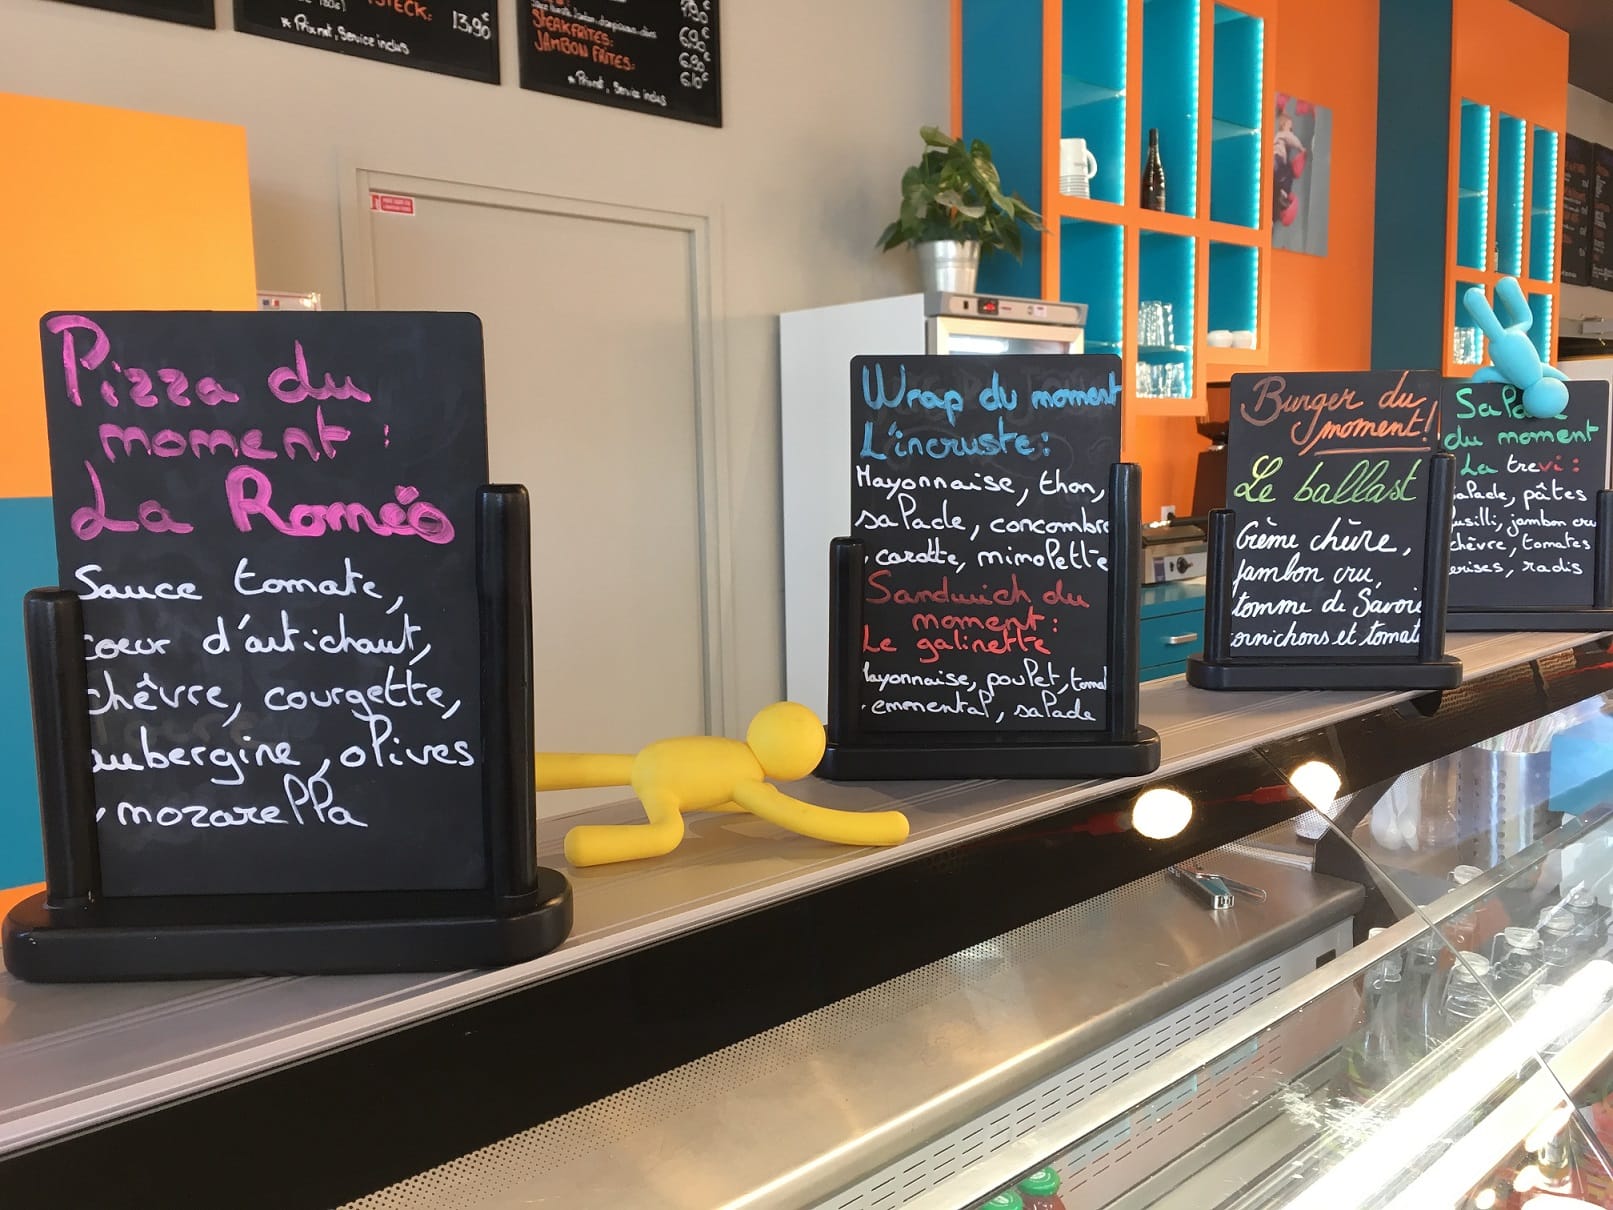 STECK: 13.90€
* Prix net, Service inclus
7.90
STEAK FRITES: 6.90€
JAMBON FRITES: 6.90€
6.10€
* Prix net, Service inclus
Pizza du
moment :
La Roméo
Sauce tomate,
coeur d'artichaut,
chèvre, courgette,
aubergine, olives
, mozarella
Wrap du moment
L'incruste :
Mayonnaise, thon,
salade, concombre
, carotte, mimolette
Sandwich du
moment :
Le galinette
Mayonnaise, poulet, tomat
, emmental, salade
Burger du
moment !
Le ballast
Crème chèvre,
jambon cru,
tomme de Savoie
ornichons et tomate
Salade
du moment
La trevi :
salade, pâtes
fusilli, jambon cru
chèvre, tomates
erises, radis